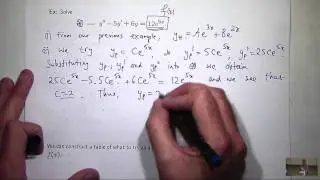 Ex: Solve
f(x)
y'' - 5y' + 6y = 12e^{5x}
① from our previous example, y_H = Ae^{3x} + Be^{2x}
② We try y_p = Ce^{5x} so y_p' = 5Ce^{5x}, y_p'' = 25Ce^{5x}
Substituting y_p, y_p' and y_p'' into we obtain
25Ce^{5x} - 5.5Ce^{5x} + 6Ce^{5x} = 12e^{5x} and we see that
C = 2. Thus, y_p = 2
We can construct a table of what to try as a
f(x)